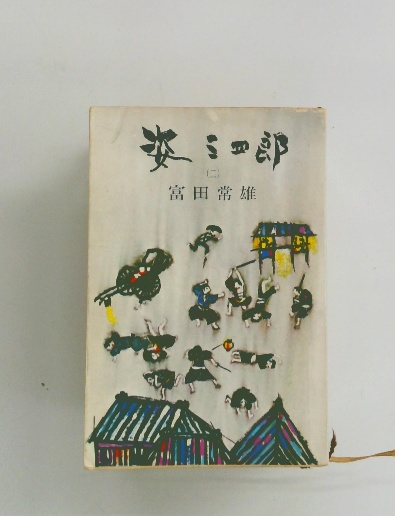 姿三四郎
(二)
富田常雄